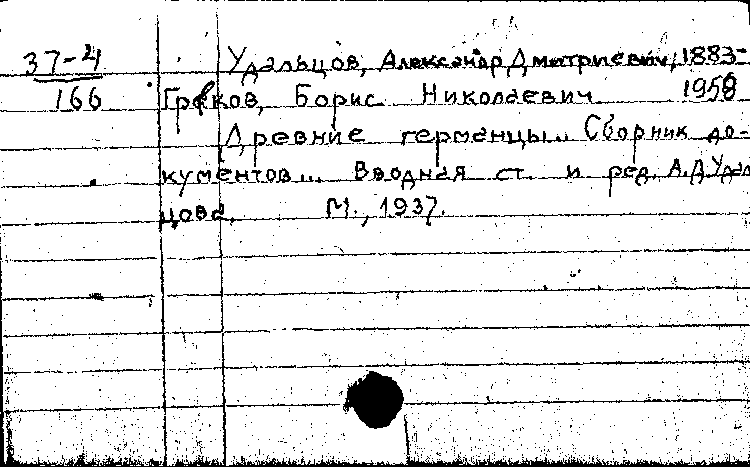 37-4 Удальцов, Александр Дмитриевич, 1883-
166 Греков, Борис Николаевич 1958
Древние германцы... Сборник до-
кументов... Вводная ст. и ред. А.Д.Удаль
цова. М., 1937.